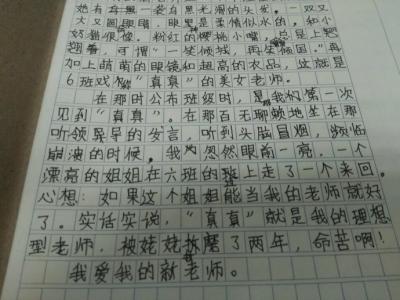 她有一袭一袋白黑光滑的头发。一双又
大又圆眼睛,眼里是柔情似水的。和小
奶猫很像。粉红的樱桃小嘴,总是上翘
翘着,可谓“一笑倾城,再笑倾国。”再
加上萌萌的眼镜和超高的衣品,这就是
6班戏称“真真”的美女老师。
在那时公布班级时,是我们第一次
见到“真真”。在那百无聊赖地坐在那
听领导的发言,听到头脑冒烟,频临
崩溃的时候。我忽然眼前一亮,一个
漂亮的姐姐在六班的班上走了一个来回。
心想:如果这个姐姐能当我的老师就好
了。实话实说,“真真”就是我的理想
型老师,被姥姥折磨了两年,命苦啊!
我爱我的新老师。